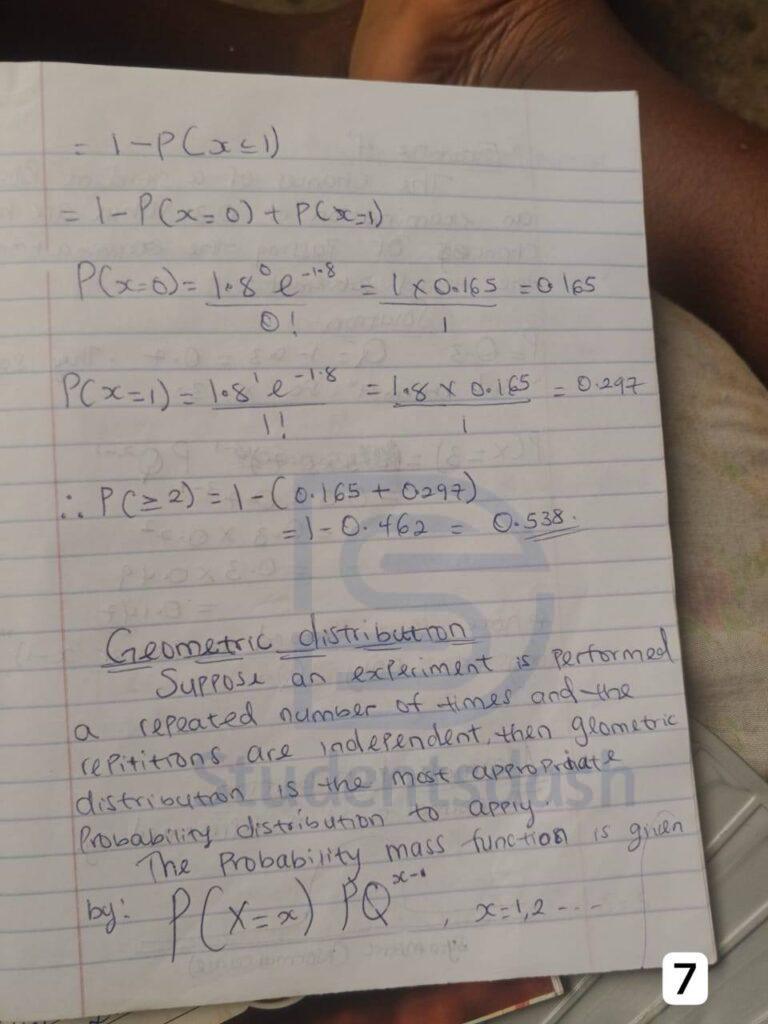 = 1 - P(x ≤ 1)
= 1 - P(x=0) + P(x=1)
P(x=0) = 1.8⁰ e⁻¹·⁸ / 0! = 1 x 0.165 / 1 = 0.165
P(x=1) = 1.8¹ e⁻¹·⁸ / 1! = 1.8 x 0.165 / 1 = 0.297
∴ P(≥ 2) = 1 - (0.165 + 0.297)
= 1 - 0.462 = 0.538.
Geometric distribution
Suppose an experiment is performed
a repeated number of times and the
repititions are independent, then geometric
distribution is the most appropriate
Probability distribution to apply.
The Probability mass function is given
by: P(X=x) PQˣ⁻¹, x=1,2 ----
Studentsdash
7